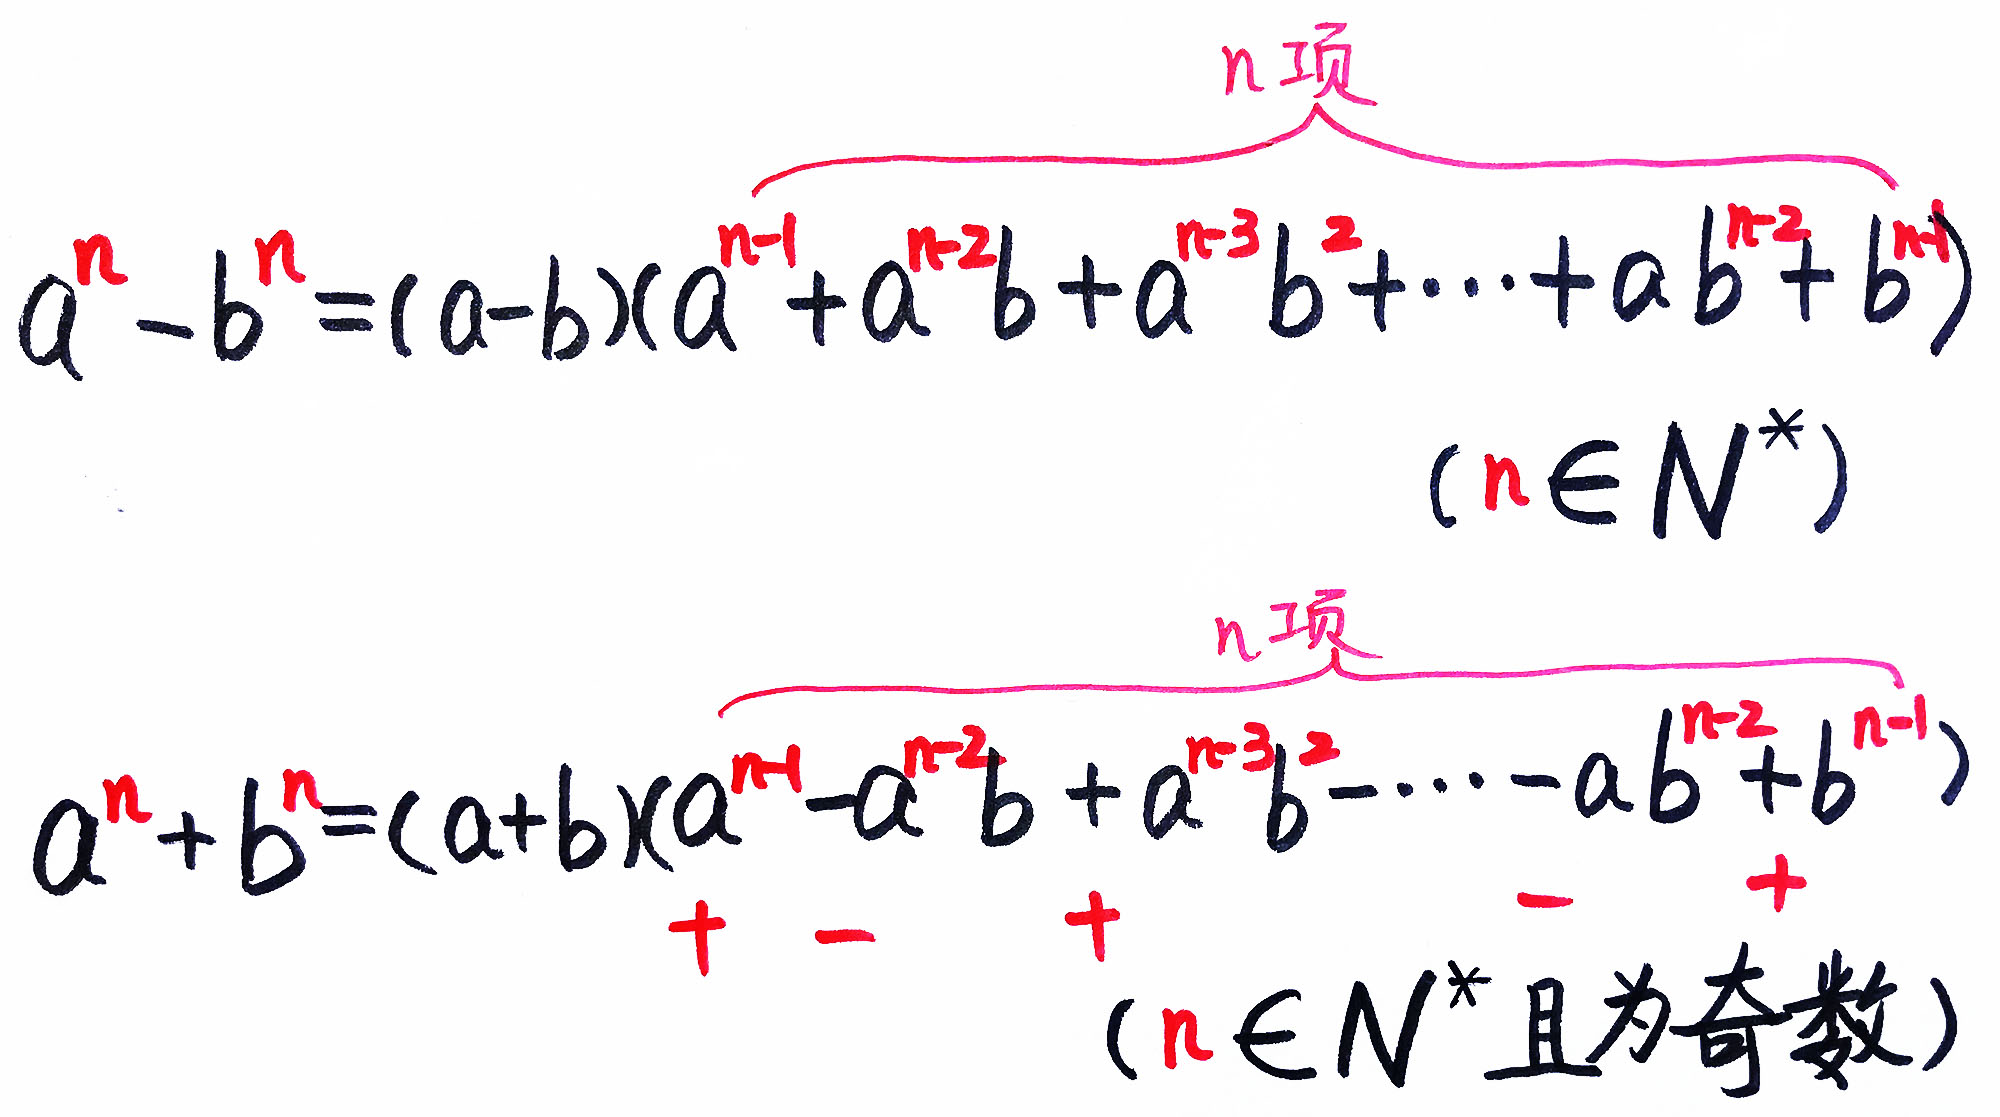 n项
aⁿ-bⁿ=(a-b)(aⁿ⁻¹+aⁿ⁻²b+aⁿ⁻³b²+⋯+abⁿ⁻²+bⁿ⁻¹)
(n∈N*)
n项
aⁿ+bⁿ=(a+b)(aⁿ⁻¹-aⁿ⁻²b+aⁿ⁻³b²-⋯-abⁿ⁻²+bⁿ⁻¹)
+ - + - +
(n∈N*且为奇数)